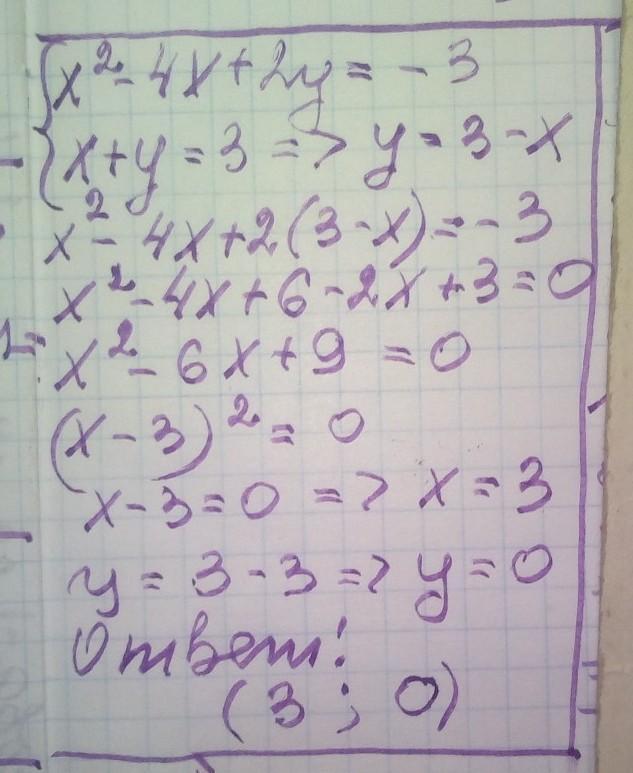 { x² - 4x + 2y = - 3
x + y = 3 => y = 3 - x
x² - 4x + 2(3 - x) = - 3
x² - 4x + 6 - 2x + 3 = 0
x² - 6x + 9 = 0
(x - 3)² = 0
x - 3 = 0 => x = 3
y = 3 - 3 => y = 0
Ответ:
(3 ; 0)